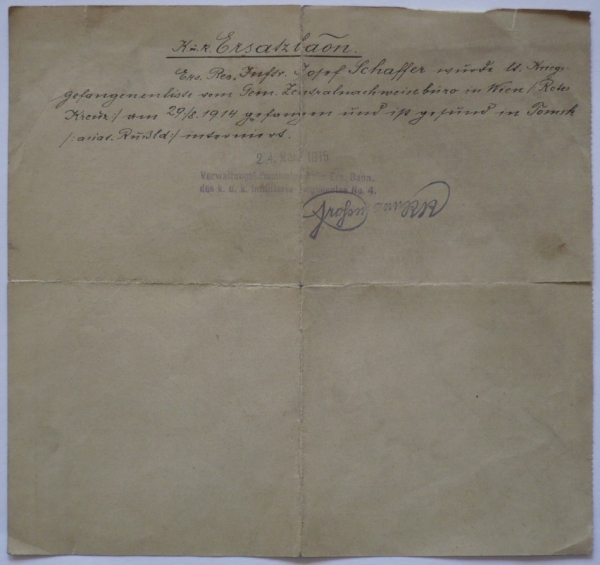 K.u.k. Ersatzbaōn.
Ers. Res. Inftr. Josef Schaffer wurde lt. Kriegs-
gefangenenliste vom Gem. Zentralnachweisebüro in Wien /: Rotes
Kreuz :/ am 29/8. 1914 gefangen und ist gesund in Tomsk
/: asiat. Rußld :/ interniert.
24. 1915
Verwaltungs Baon.
des k. u. k. Infanterie Regimentes No. 4.